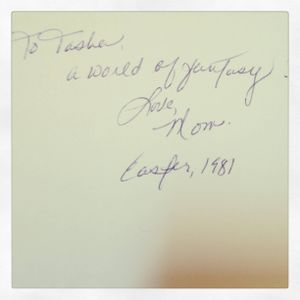 To Tasha,
a world of fantasy.
Love,
Mom.
Easter, 1981